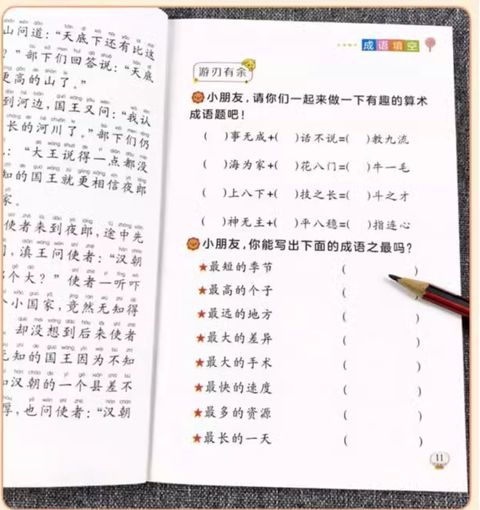 山问道：“天底下还有比这
？”部下们回答说：“天底
更高的山了。”
到河边，国王又问：“我认
长的河川了。”部下们仍
：“大王说得一点都没
知的国王就更相信夜郎
家。
使者来到夜郎，途中先
，滇王问使者：“汉朝
个大？”使者一听吓
个小国家，竟然无知得
却没想到后来使者
无知的国王因为不知
和汉朝的一个县差不
厚，也问使者：“汉朝
成语填空
游刃有余
小朋友，请你们一起来做一下有趣的算术
成语题吧！
( )事无成+( )话不说=( )教九流
( )海为家+( )花八门=( )牛一毛
( )上八下+( )技之长=( )斗之才
( )神无主+( )平八稳=( )指连心
小朋友，你能写出下面的成语之最吗？
★最短的季节 ( )
★最高的个子 (
★最远的地方 ( )
★最大的差异 ( )
★最大的手术 ( )
★最快的速度 ( )
★最多的资源 ( )
★最长的一天 ( )
11